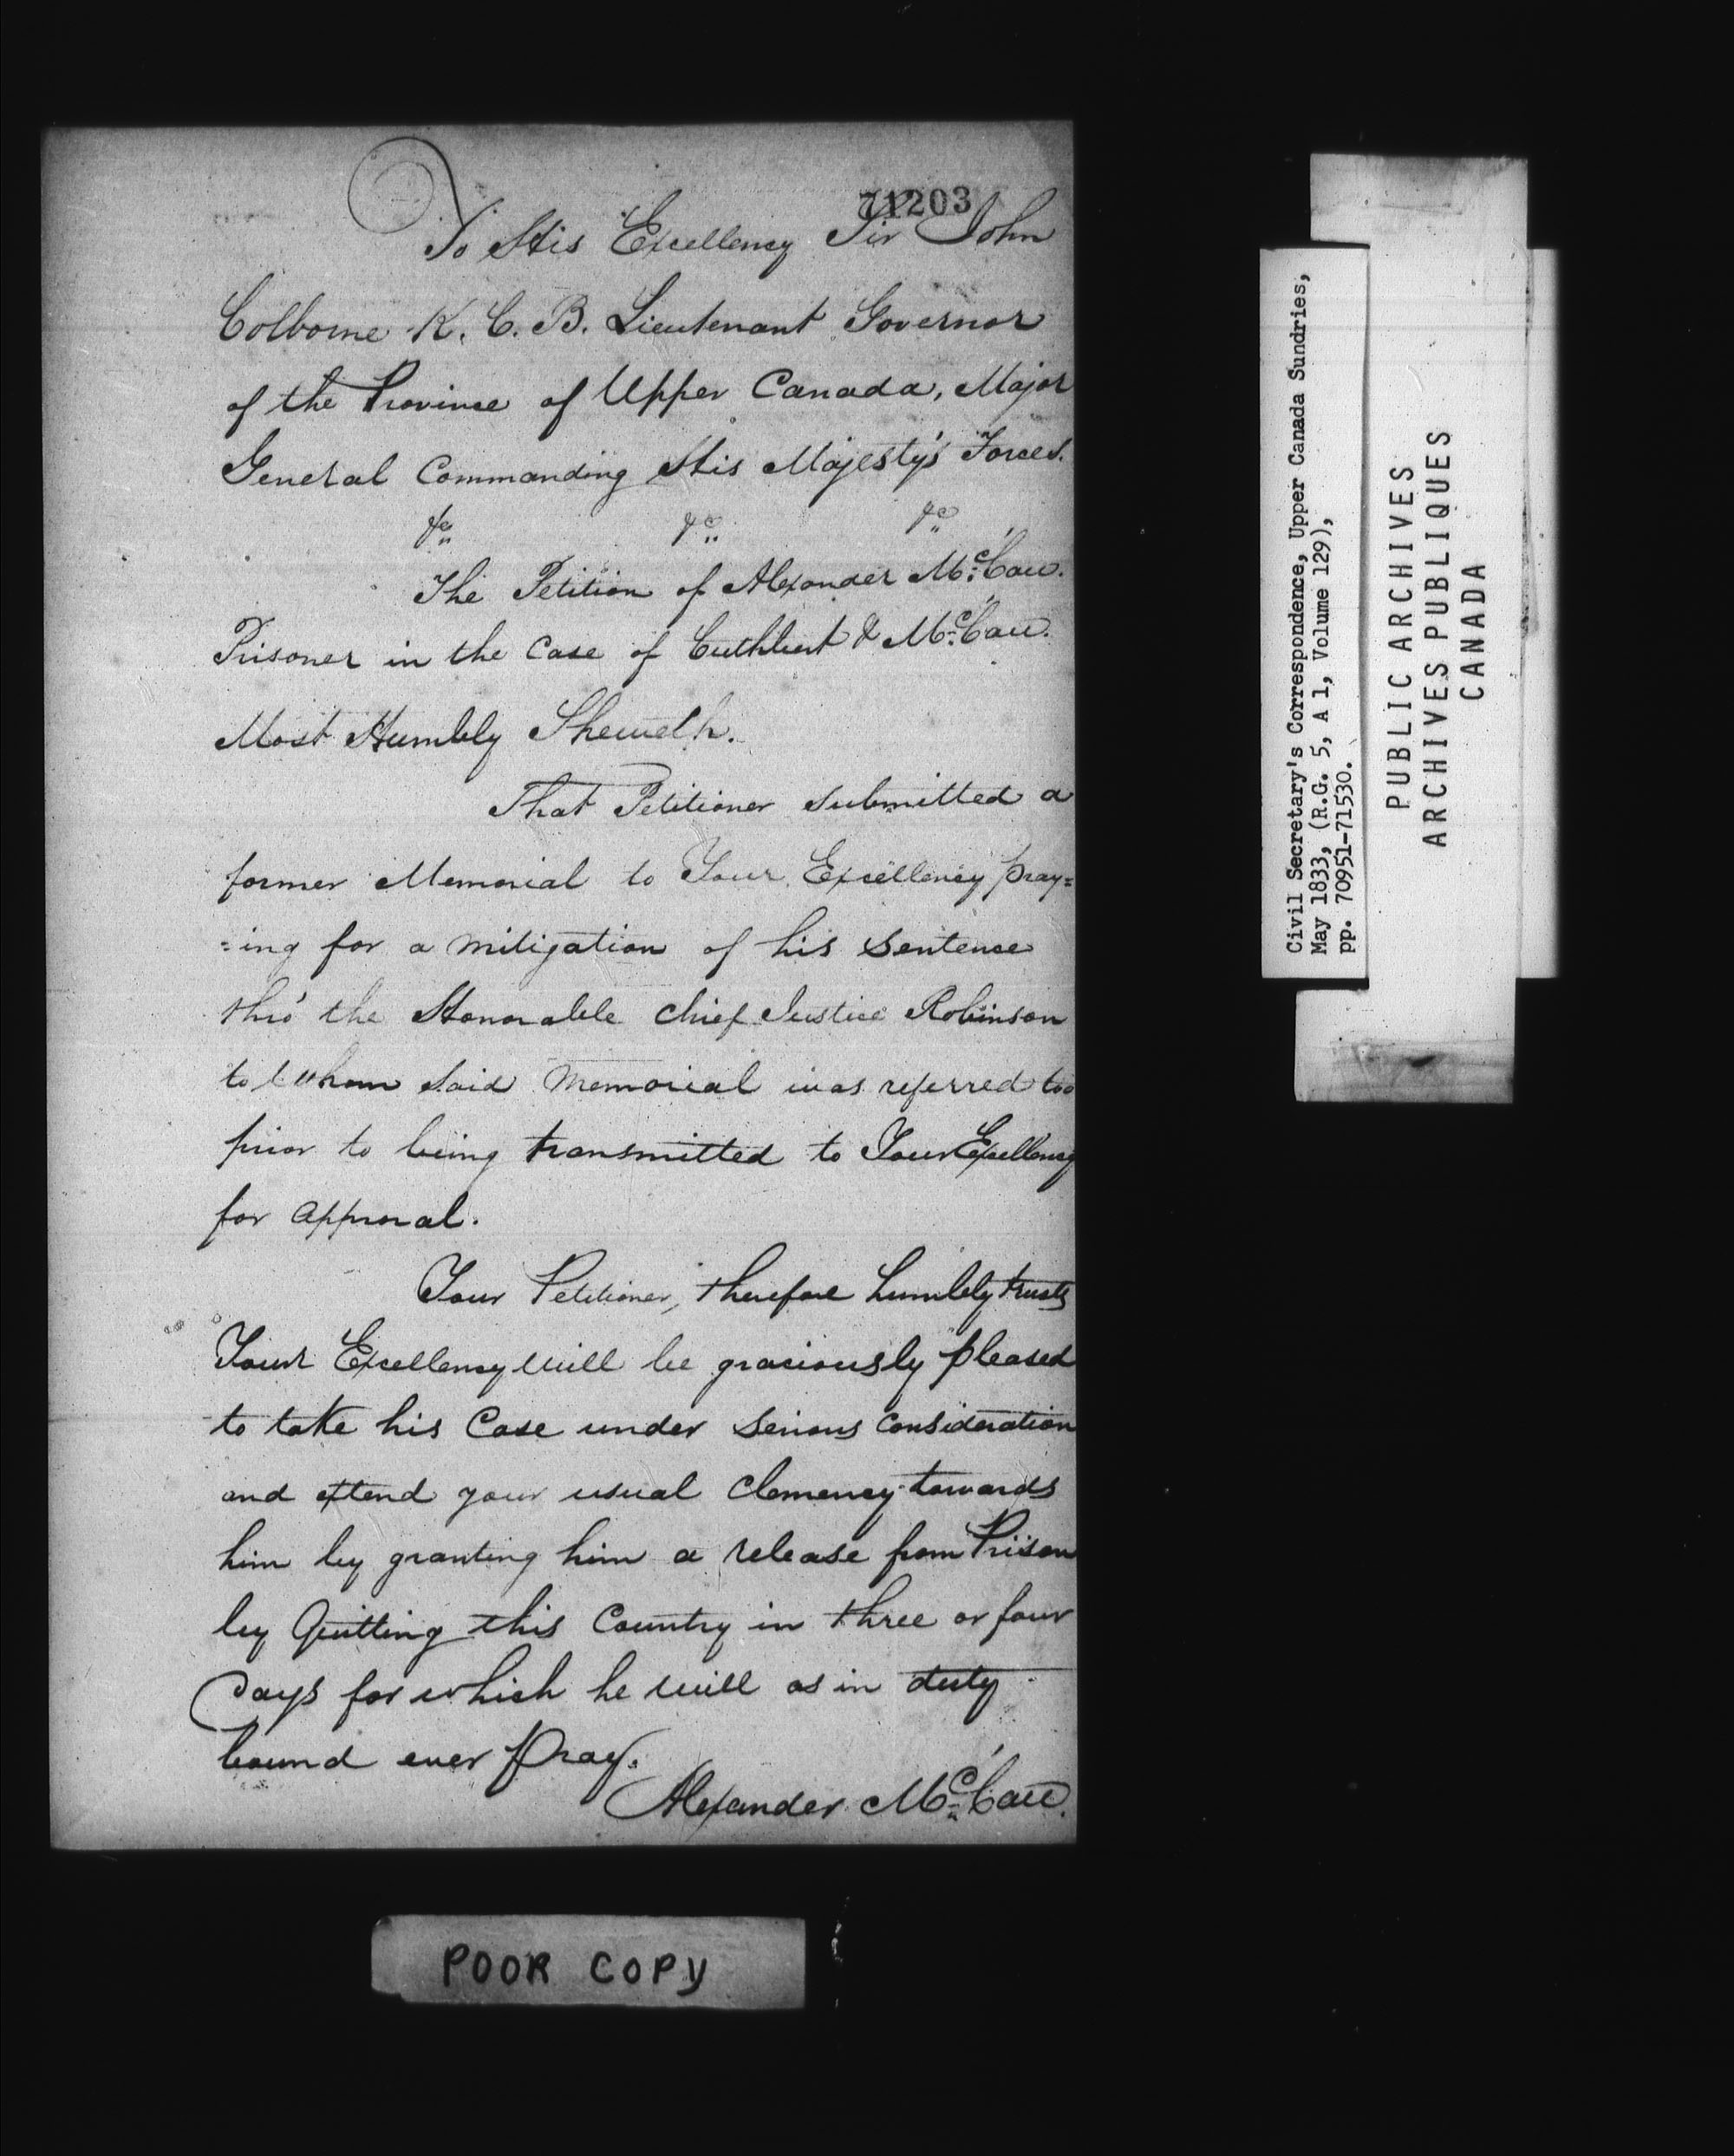 71203
To His Excellency Sir John
Colborne K. C. B. Lieutenant Governor
of the Province of Upper Canada, Major
General Commanding His Majesty's Forces.
&c &c &c
The Petition of Alexander McCaw.
Prisoner in the Case of Cuthbert & McCaw.
Most Humbly Sheweth.
That Petitioner submitted a
former Memorial to Your Excellency pray=
=ing for a mitigation of his Sentence
thro' the Honorable Chief Justice Robinson
to whom said Memorial was referred too
prior to being transmitted to Your Excellency
for approval.
Your Petitioner, therefore humbly trusts
Your Excellency will be graciously pleased
to take his Case under serious Consideration
and extend your usual Clemency towards
him by granting him a release from Prison
by Quitting this Country in three or four
Days for which he will as in duty
bound ever Pray.
Alexander McCaw.
POOR COPY
Civil Secretary's Correspondence, Upper Canada Sundries,
May 1833, (R.G. 5, A 1, Volume 129),
pp. 70951-71530.
PUBLIC ARCHIVES
ARCHIVES PUBLIQUES
CANADA